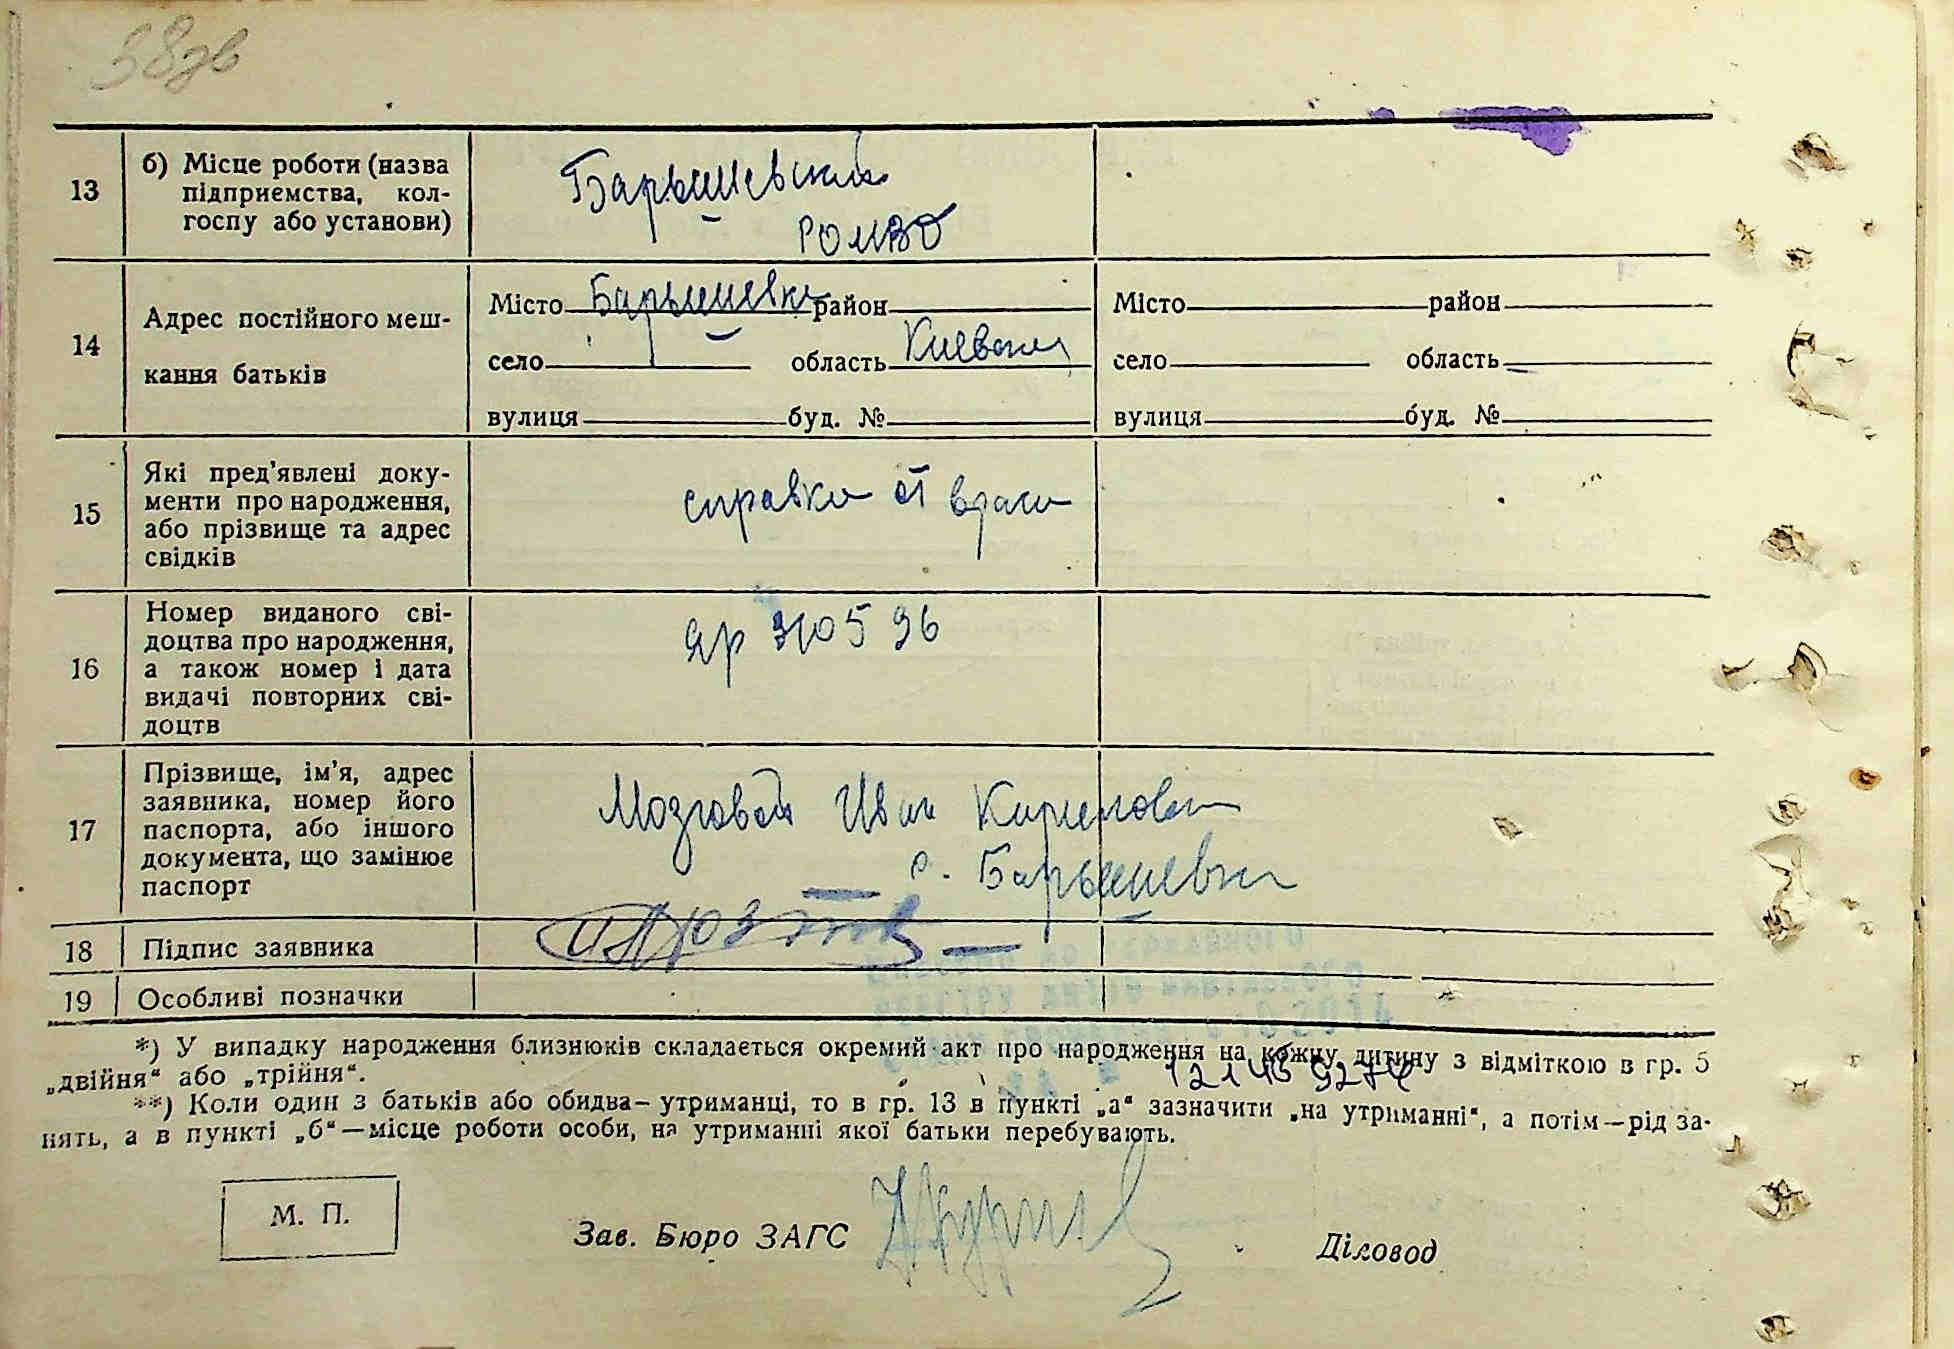 38зв
13
б) Місце роботи (назва
підприємства, кол-
госпу або установи)
Барышевский
РОМВД
14
Адрес постійного меш-
кання батьків
Місто Барышевка район
село область Киевская
вулиця буд. №
Місто район
село область
вулиця буд. №
15
Які пред'явлені доку-
менти про народження,
або прізвище та адрес
свідків
справка от врача
16
Номер виданого сві-
доцтва про народження,
а також номер і дата
видачі повторних сві-
доцтв
ЯР 310596
17
Прізвище, ім'я, адрес
заявника, номер його
паспорта, або іншого
документа, що замінює
паспорт
Мозговой Иван Кирилович
с. Барышевка
18 Підпис заявника
19 Особливі позначки
*) У випадку народження близнюків складається окремий акт про народження на кожну дитину з відміткою в гр. 5
„двійня“ або „трійня“.
**) Коли один з батьків або обидва—утриманці, то в гр. 13 в пункті „а“ зазначити „на утриманні“, а потім—рід за-
нять, а в пункті „б“—місце роботи особи, на утриманні якої батьки перебувають.
М. П.
Зав. Бюро ЗАГС
Діловод